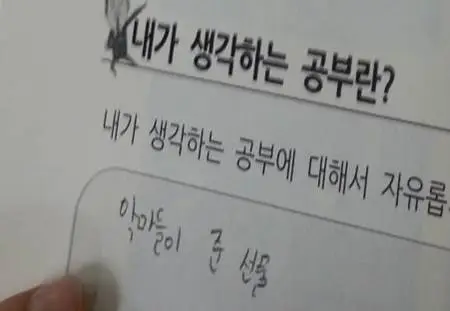 내가 생각하는 공부란?
내가 생각하는 공부에 대해서 자유롭
악마들이 준 선물